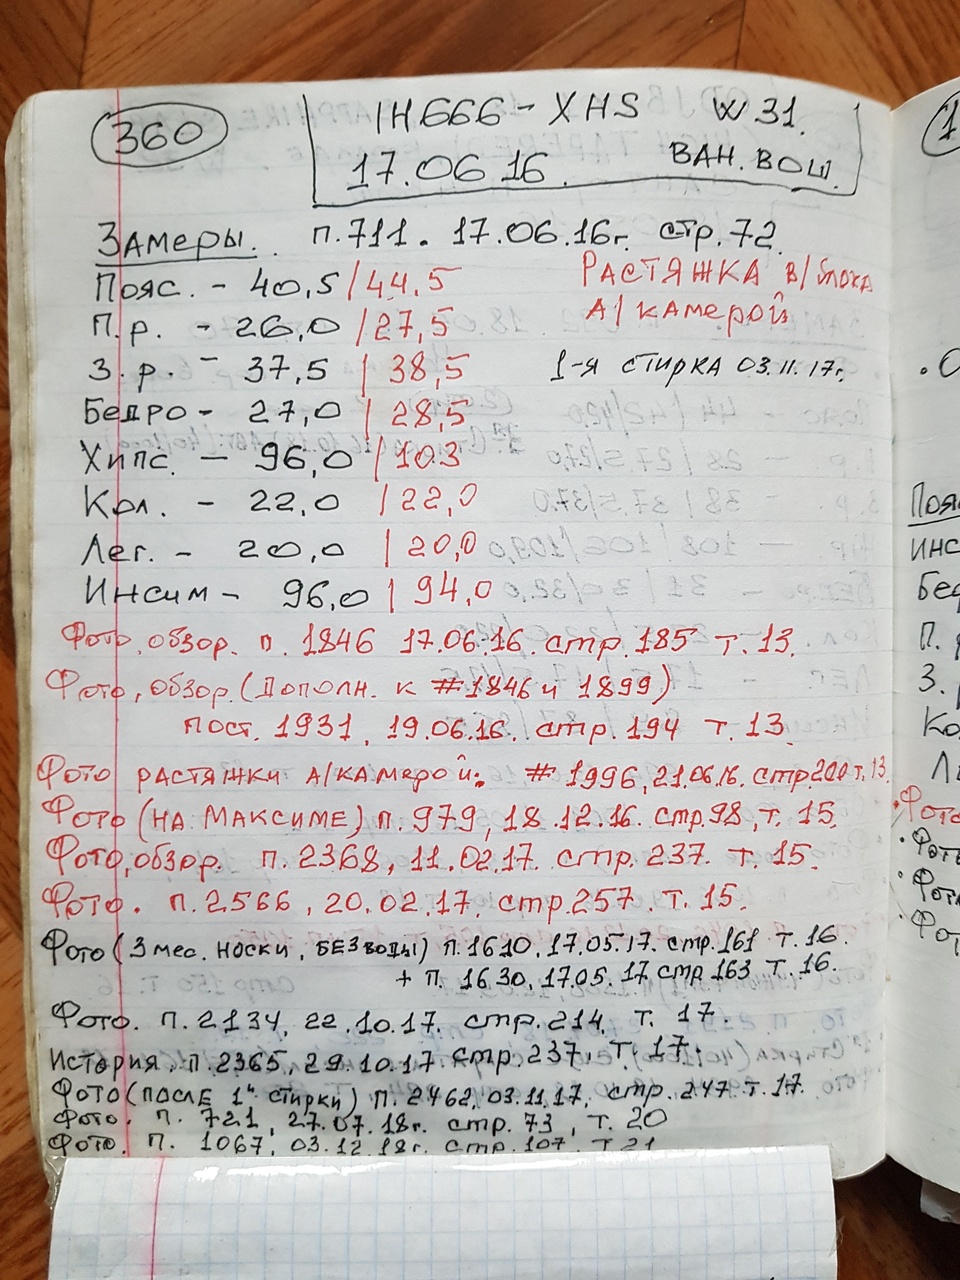 360
IH666-XHS W31.
17.06.16. ВАН. ВОШ.
Замеры. п.711. 17.06.16г. стр.72.
Пояс. - 40,5/44,5 РАСТЯЖКА в/блока
П.р. - 26,0/27,5 А/камерой
З.р. - 37,5/38,5 1-я стирка 03.11.17г.
Бедро - 27,0/28,5
Хипс. - 96,0/103
Кол. - 22,0/22,0
Лег. - 20,0/20,0
Инсим - 96,0/94,0
Фото, обзор. п. 1846 17.06.16. стр.185 т.13.
Фото, обзор. (Дополн. к #1846 и 1899)
пост. 1931, 19.06.16. стр.194 т.13.
Фото растяжки А/камерой: #1996, 21.06.16. стр200 т.13.
Фото (на Максиме) п.979, 18.12.16. стр.98, т.15.
Фото, обзор. п.2368, 11.02.17. стр.237. т.15.
Фото. п.2566, 20.02.17. стр.257. т.15.
Фото (3 мес. носки, без воды) п.1610, 17.05.17. стр.161 т.16.
+ п. 1630, 17.05.17 стр 163 т.16.
Фото. п.2134, 22.10.17. стр.214, т.17.
История, п.2365, 29.10.17. стр.237. т.17.
Фото (после 1й стирки) п.2462, 03.11.17, стр.247 т.17.
Фото. п. 721, 27.07.18г. стр.73, т.20
Фото. п. 1067, 03.12.18г. стр.107, т.21